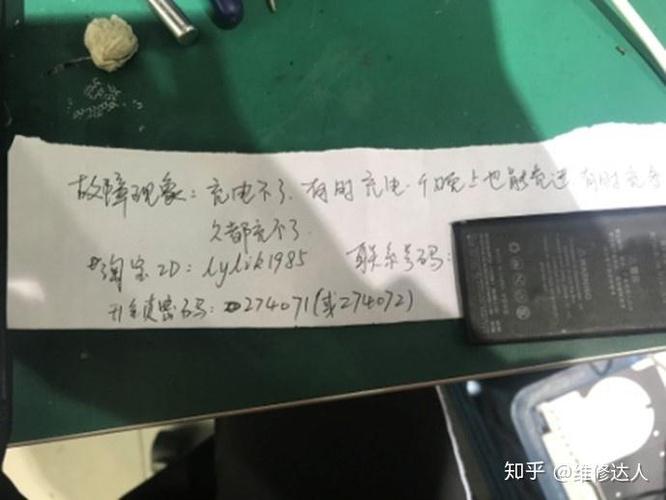 故障现象：充电不了.有时充电.个晚上也能充进.有时充
久都充不了.
淘宝ID：lylik1985 联系号码：
开锁密码：274071(或274072)
知乎 @维修达人